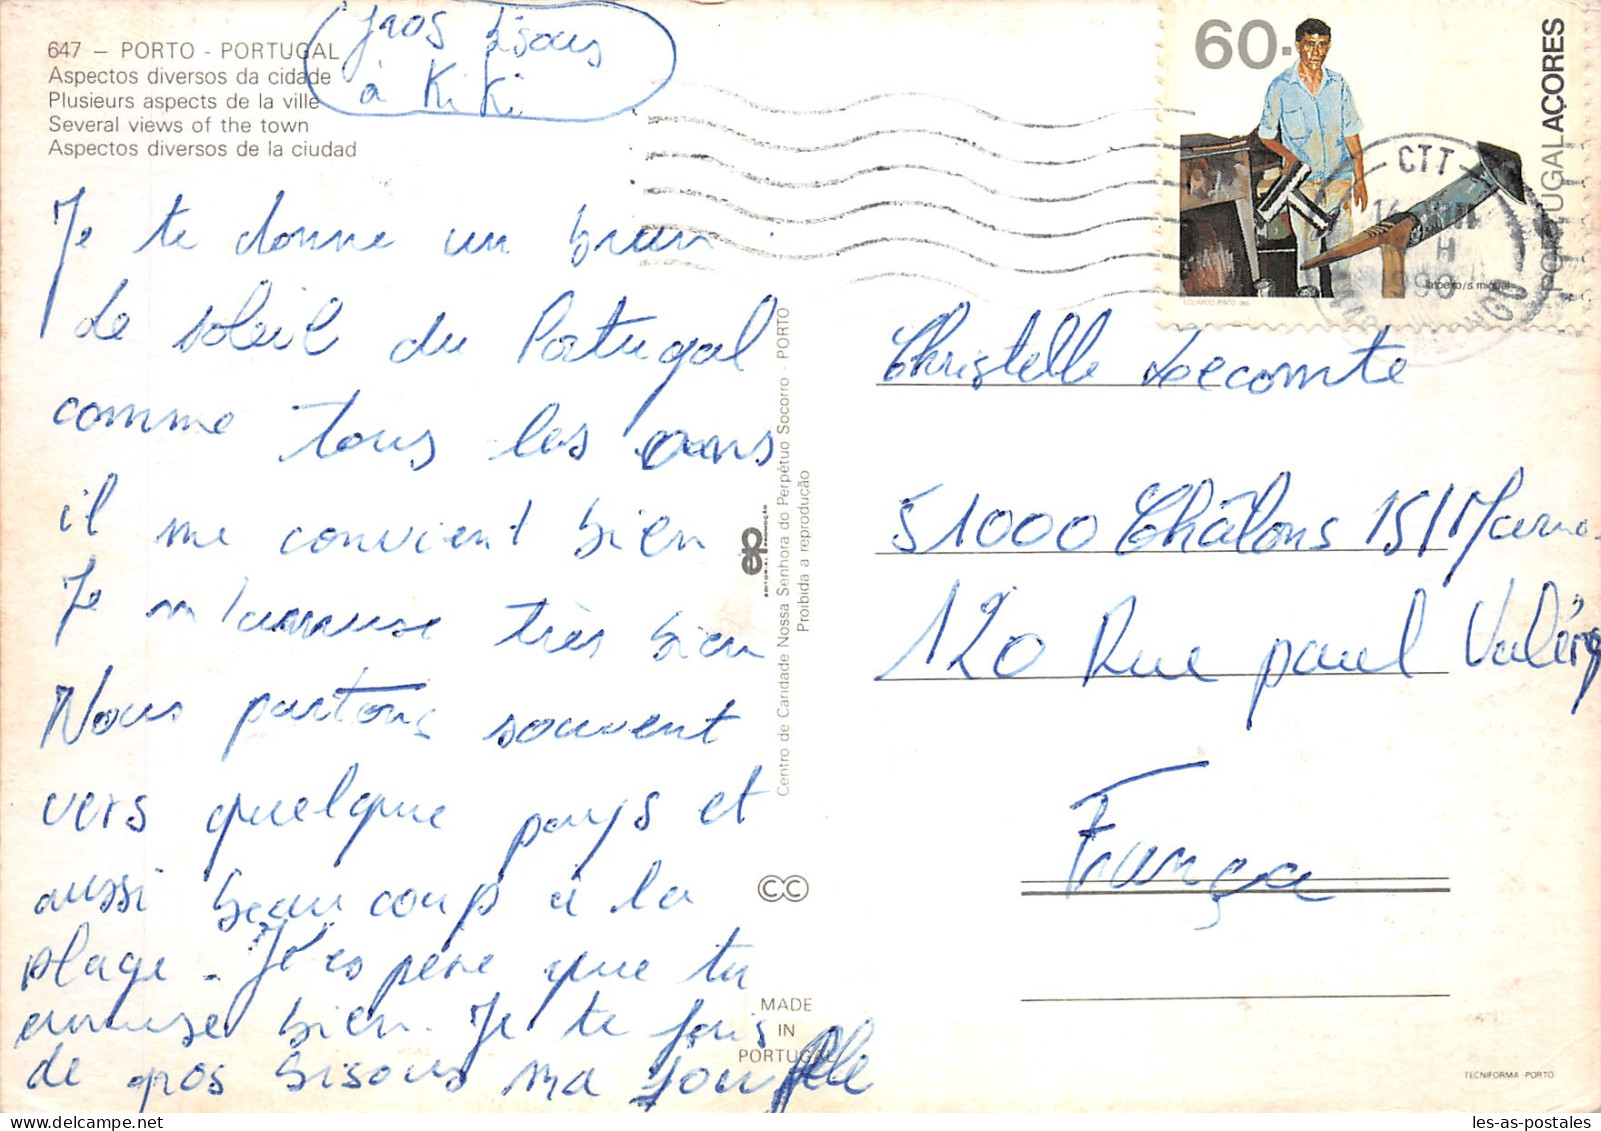 647 – PORTO - PORTUGAL
Aspectos diversos da cidade
Plusieurs aspects de la ville
Several views of the town
Aspectos diversos de la ciudad
gros bisous
à KiKi
60.-
PORTUGAL AÇORES
EDUARDO PINTO
latoeiro/s. miguel
CTT
Je te donne un
Le soleil du Portugal
comme tous les ans
il me convient bien
Je m'amuse très bien
Nous partons souvent
vers quelque pays et
aussi beaucoup a la
plage - J'espère que tu
amuse bien. Je te fais
de gros bisous ma
Centro de Caridade Nossa Senhora do Perpétuo Socorro - PORTO
Proibida a reprodução
MADE
IN
PORTUGAL
Christelle Lecomte
51000 Châlons /S/ Marne
120 Rue paul Valéry
França
TECNIFORMA - PORTO
les-as-postales